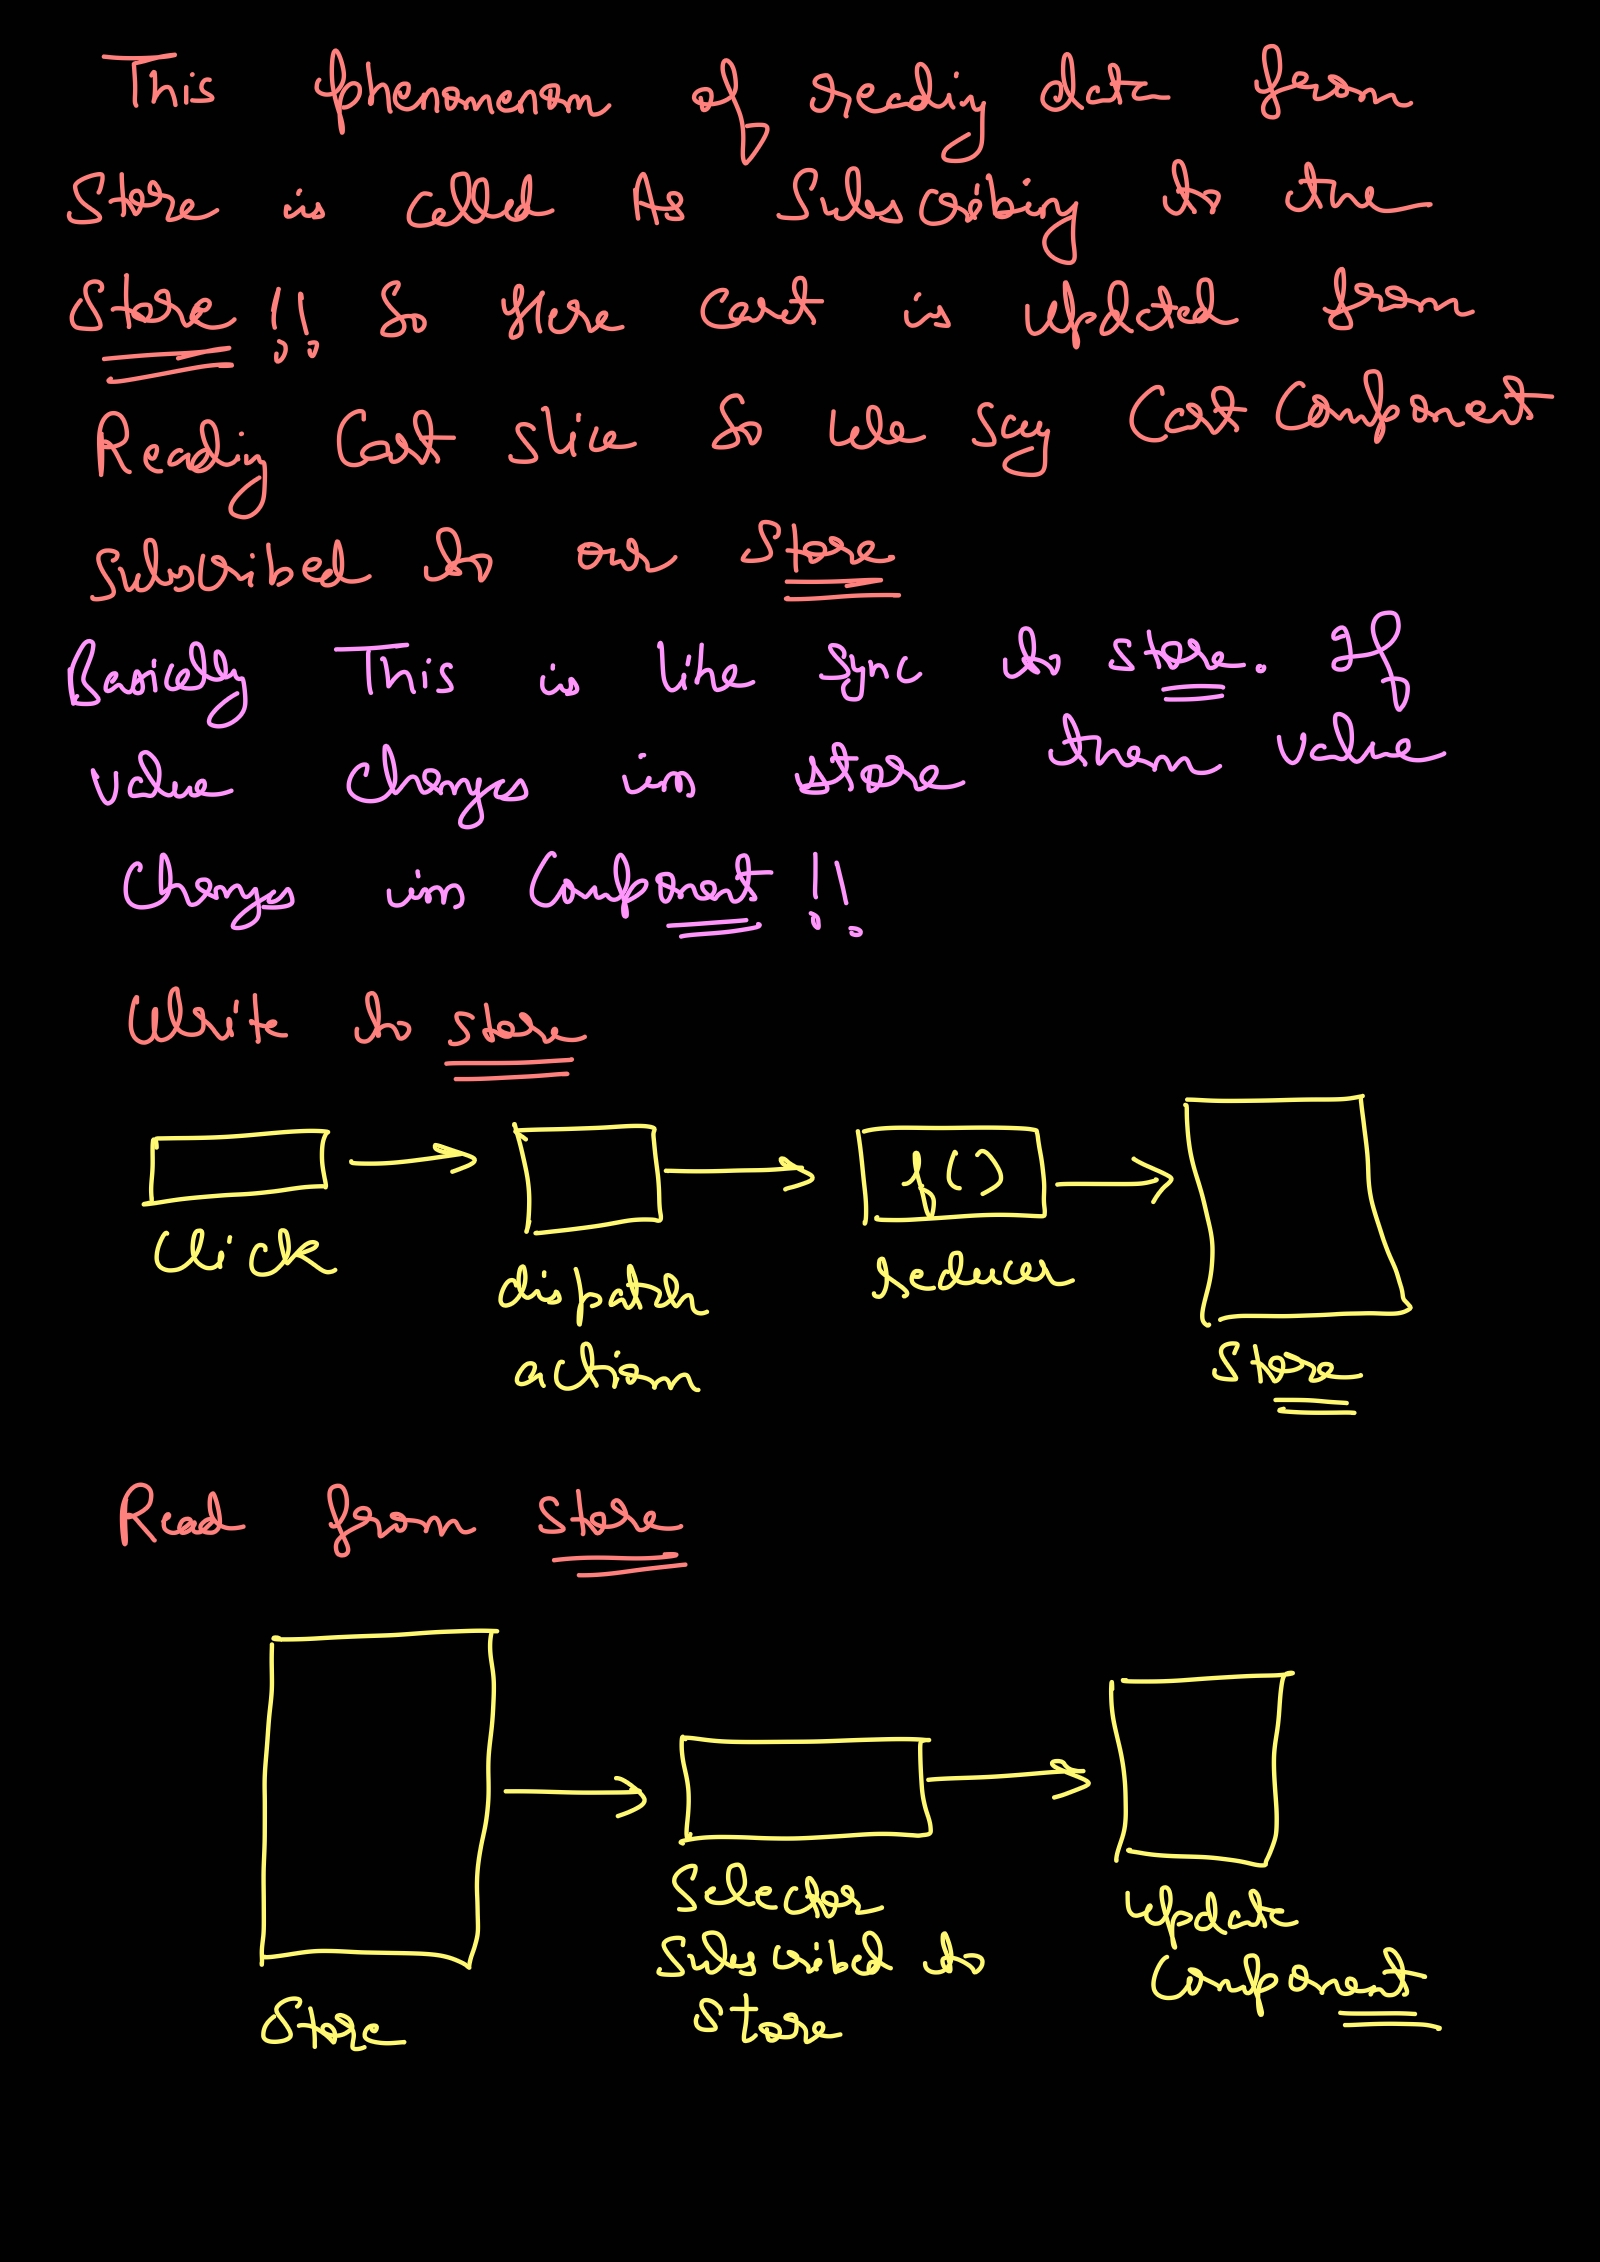 This phenomenon of reading data from
Store is called As Subscribing to the
Store !! So Here Cart is updated from
Reading Cart slice So we say Cart Component
Subscribed to our Store
Basically This is like Sync to store. If
value changes in store then value
Changes in Component !!
Write to store
f()
Click
reducer
dispatch
action
Store
Read from Store
Selector
Subscribed to
Store
update
Component
Store